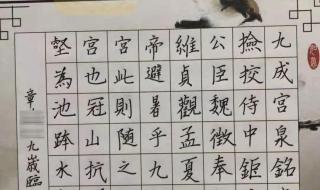 九成宮泉銘
撿挍侍中鉅
公臣魏徵奉
維貞觀孟夏
帝避暑乎九
宮此則隨之
宮也冠山抗
壑為池跨水
章 九歲臨